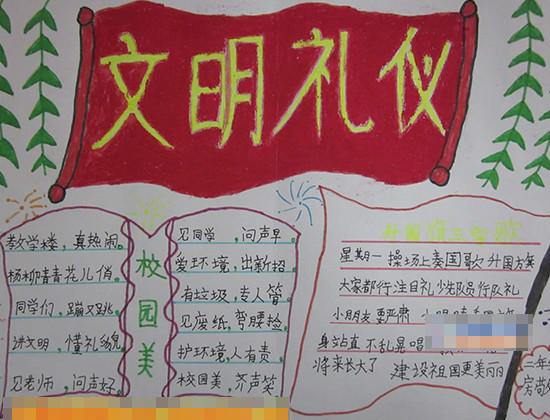 文明礼仪
教学楼,真热闹。
杨柳青青花儿俏。
同学们,蹦又跳
讲文明,懂礼貌
见老师,问声好。
校园美
见同学,问声早。
爱环境,出新招
有垃圾,专人管。
见废纸,弯腰捡。
护环境,人有责。
校园美,齐声笑。
升国旗
星期一 操场上奏国歌升国旗
大家都行注目礼少先队员行队礼
小朋友要严肃
身站直 不乱晃
将来长大了 建设祖国更美丽